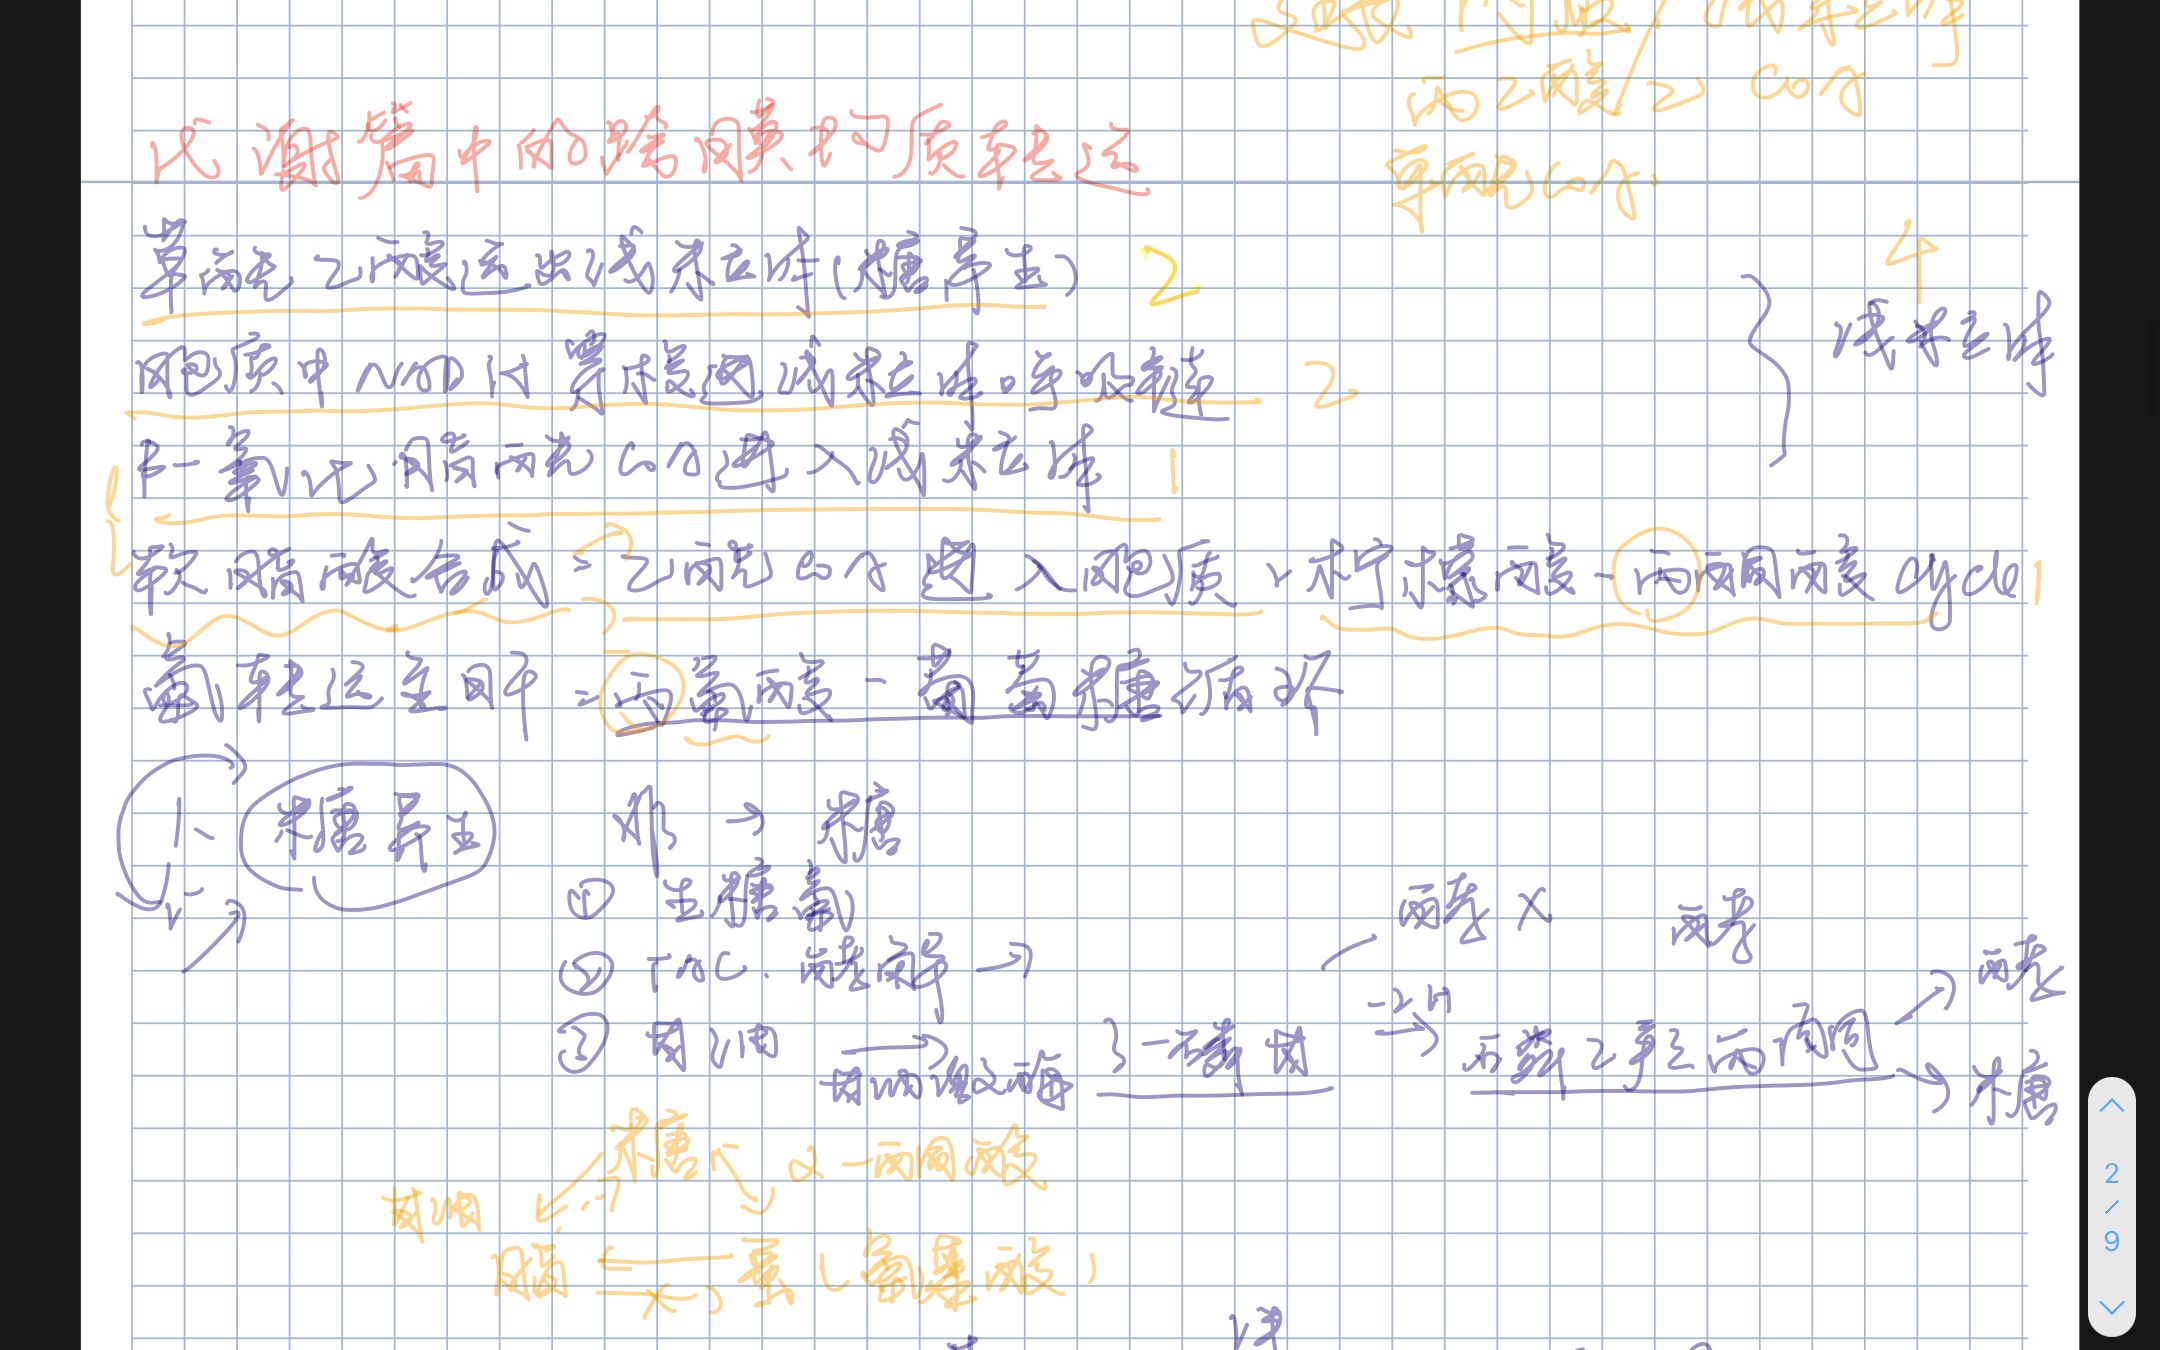 丙乙酸/乙CoA
草酰CoA.
代谢篇中的跨膜物质转运
草酰乙酸运出线粒体(糖异生) 2
4
胞质中NADH穿梭透线粒体呼吸链 2
线粒体
β-氧化脂酰CoA进入线粒体 1
软脂酸合成=乙酰CoA进入胞质、柠檬酸-丙酮酸cycle 1
氨转运至肝=丙氨酸-葡萄糖循环
1、糖异生 非→糖
① 生糖氨
② TAC. 酵解→
③ 甘油 → 甘油激酶 3-磷甘 -2H → 磷二羟丙酮 → 酵
→ 糖
酵 X 酵
糖 α-酮酸
甘油
脂 ← 蛋(氨基酸)
X